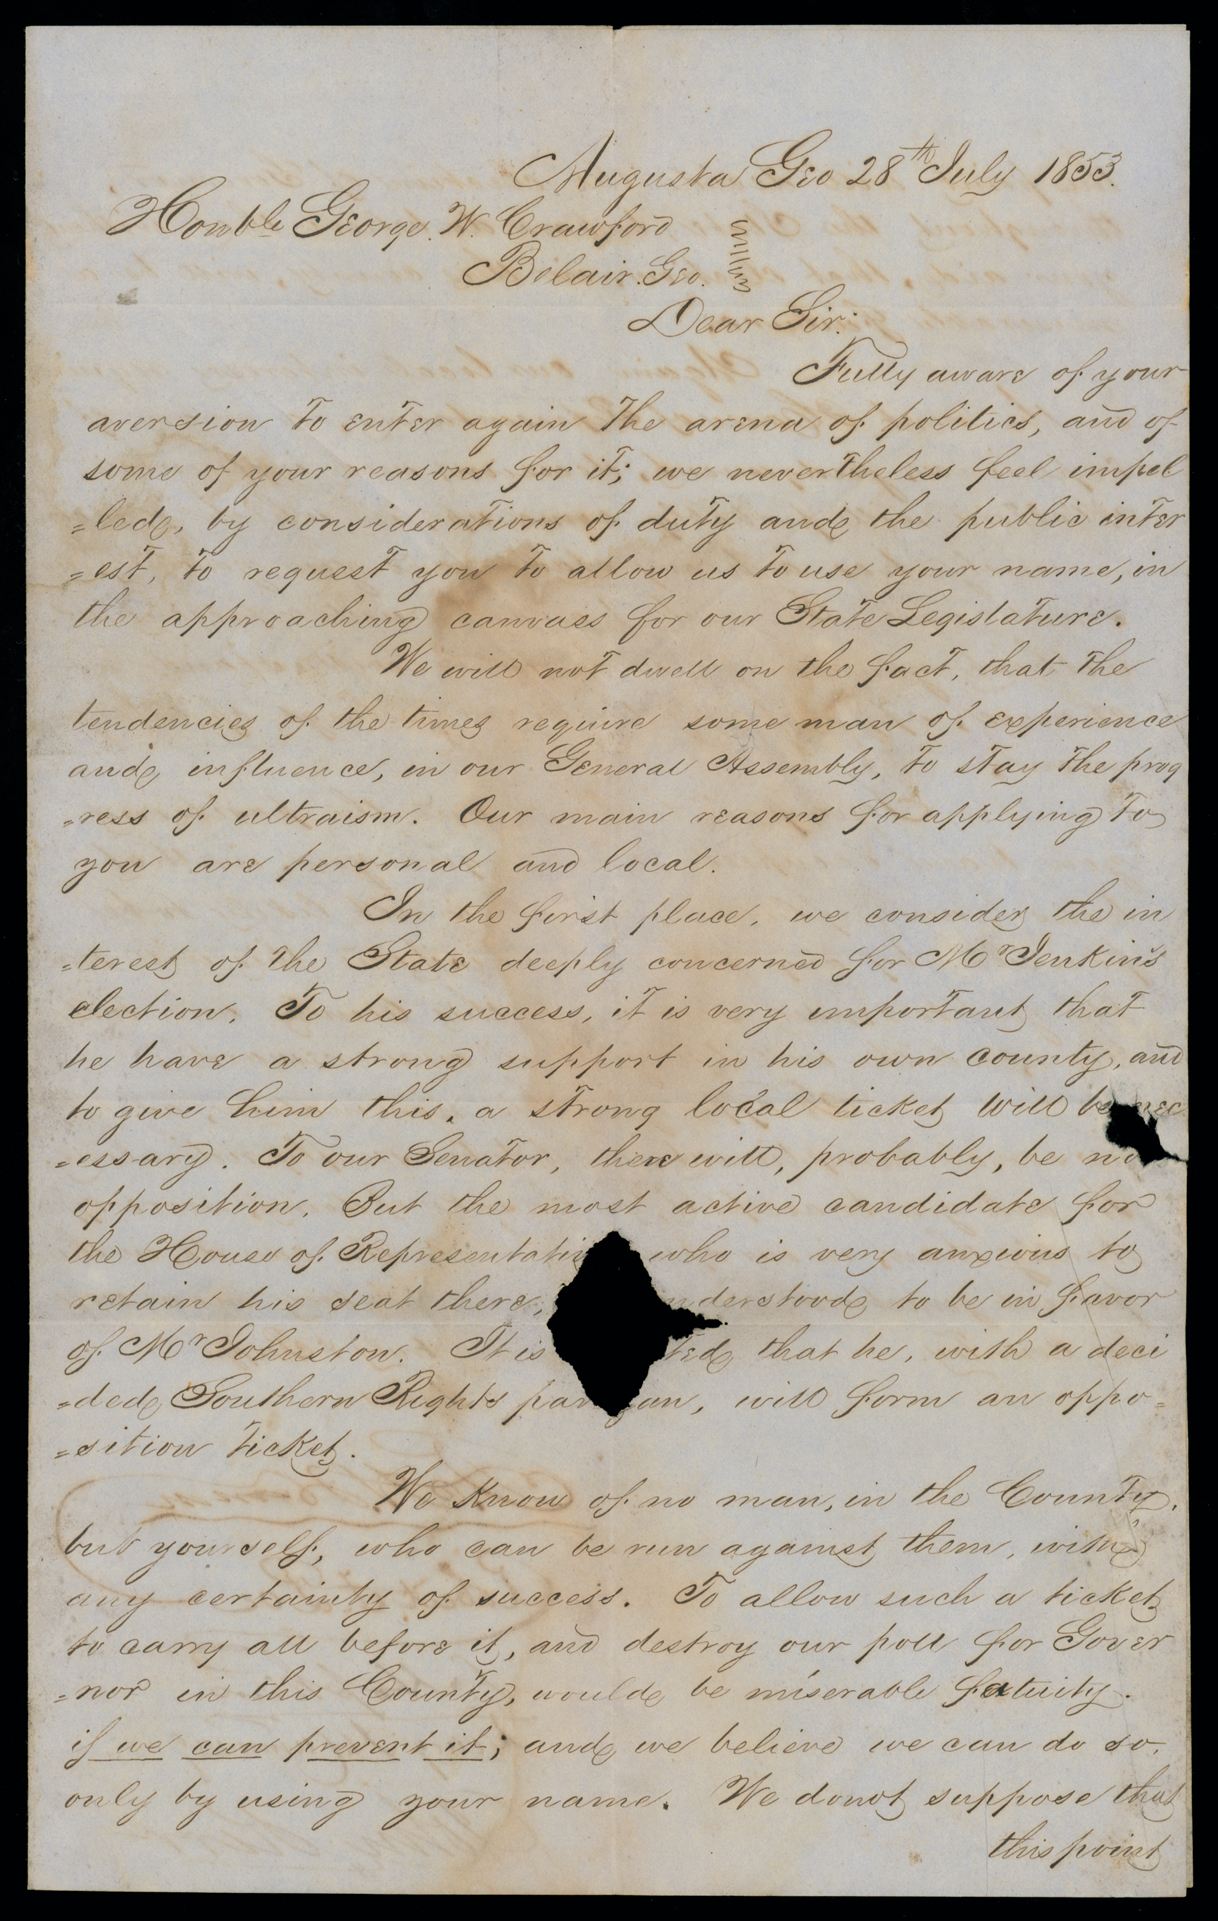 Augusta Geo 28th July 1853.
Honble George. W. Crawford
Belair. Geo.
Dear Sir:
Fully aware of your
aversion to enter again the arena of politics, and of
some of your reasons for it; we nevertheless feel impel
=led, by considerations of duty and the public inter
=est, to request you to allow us to use your name, in
the approaching canvass for our State Legislature.
We will not dwell on the fact, that the
tendencies of the times require some man of experience
and influence, in our General Assembly, to stay the prog
=ress of ultraism. Our main reasons for applying to
you are personal and local.
In the first place, we consider the in
=terest of the State deeply concerned for Mr Jenkins's
election. To his success, it is very important that
he have a strong support in his own county, and
to give him this, a strong local ticket will be nec
=essary. To our Senator, there will, probably, be no
opposition. But the most active candidate for
the House of Representativ who is very anxious to
retain his seat there, nderstood to be in favor
of Mr Johnston. It is ted that he, with a deci
=ded Southern Rights par an, will form an oppo=
=sition ticket.
We know of no man, in the County,
but yourself, who can be run against them, with
any certainty of success. To allow such a ticket
to carry all before it, and destroy our poll for Gover
=nor in this County, would be miserable fatuity.
if we can prevent it; and we believe we can do so,
only by using your name. We do not suppose that
this point